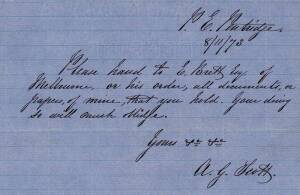 P. E. Partridge
8/11/73
Please hand to E. Brett Esq. of
Melbourne, or his order, all documents, or
papers, of mine, that you hold. Your doing
so will much oblige.
Yours &c &c
A. G. Scott.